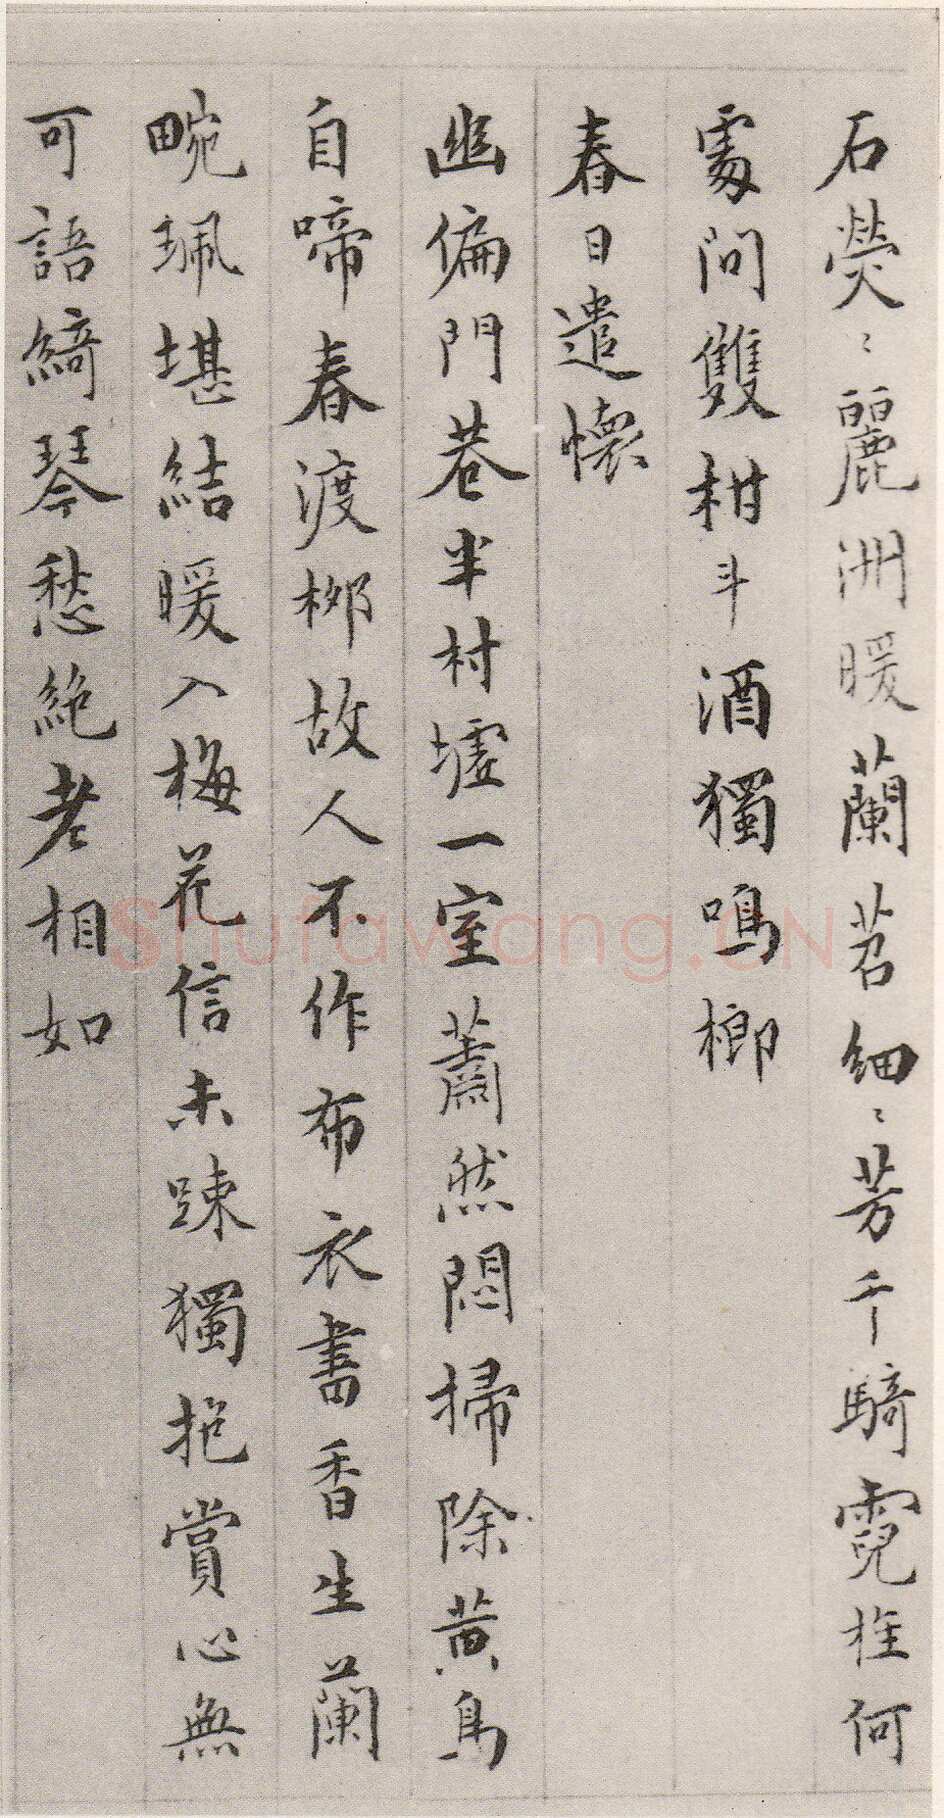 石熒〻麗洲暖蘭苕細〻芳千騎霓旌何
處問雙柑斗酒獨鳴榔
春日遣懷
幽偏門巷半村墟一室蕭然悶掃除黃鳥
自啼春渡柳故人不作布衣書香生蘭
畹珮堪結暖入梅花信未踈獨抱賞心無
可語綺琴愁絕老相如
Shufawang.CN